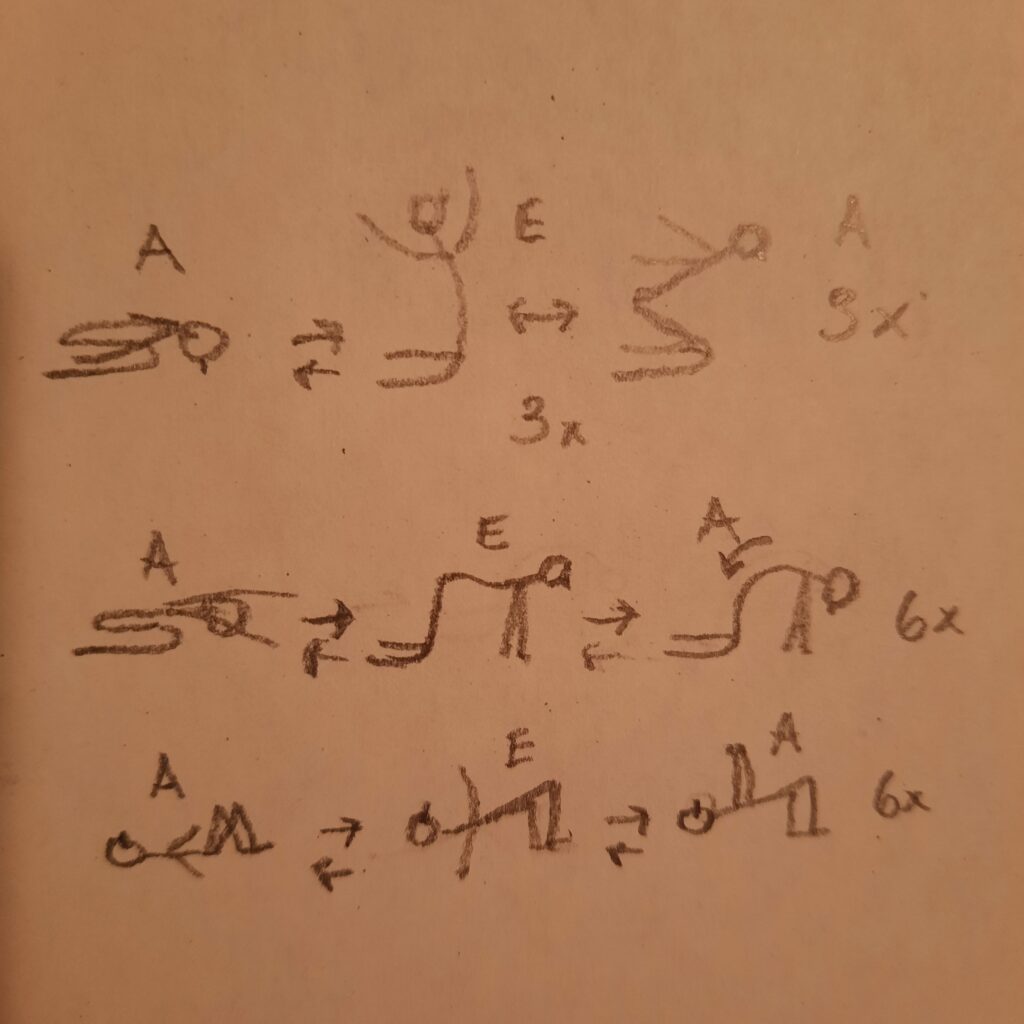 A E A
3x
3x
A E A 6x
A E A 6x